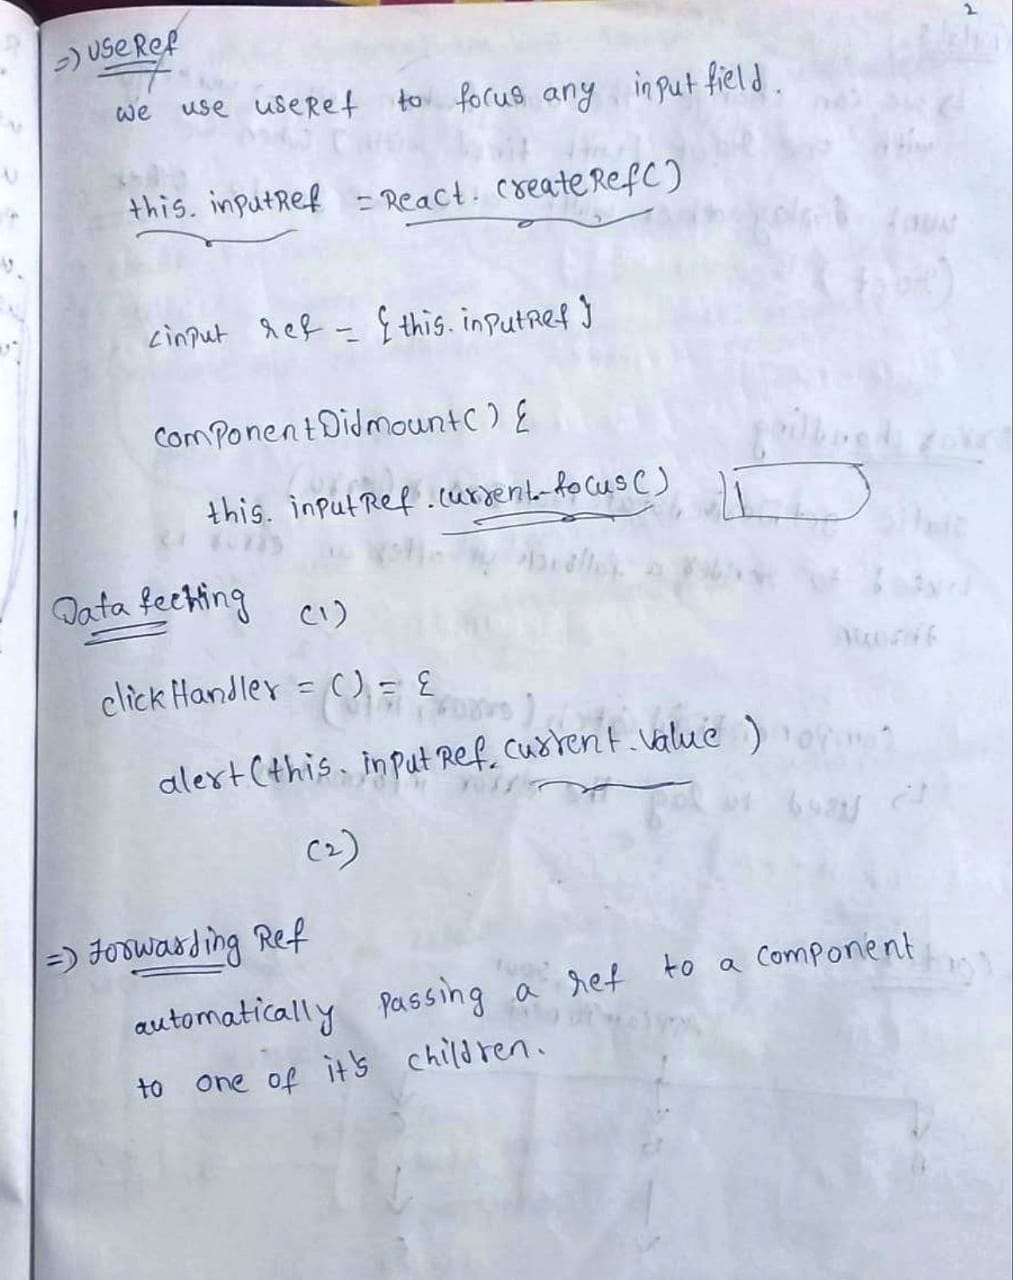 2
=> useRef
we use useRef to focus any input field.
this. inputRef = React. createRef()
<input ref = {this. inputRef}
componentDidmount() {
this. inputRef. current.focus()
Data feching (1)
clickHandler = () = {
alert(this. inputRef. current. value )
(2)
=> Forwarding Ref
automatically passing a ref to a component
to one of it's children.